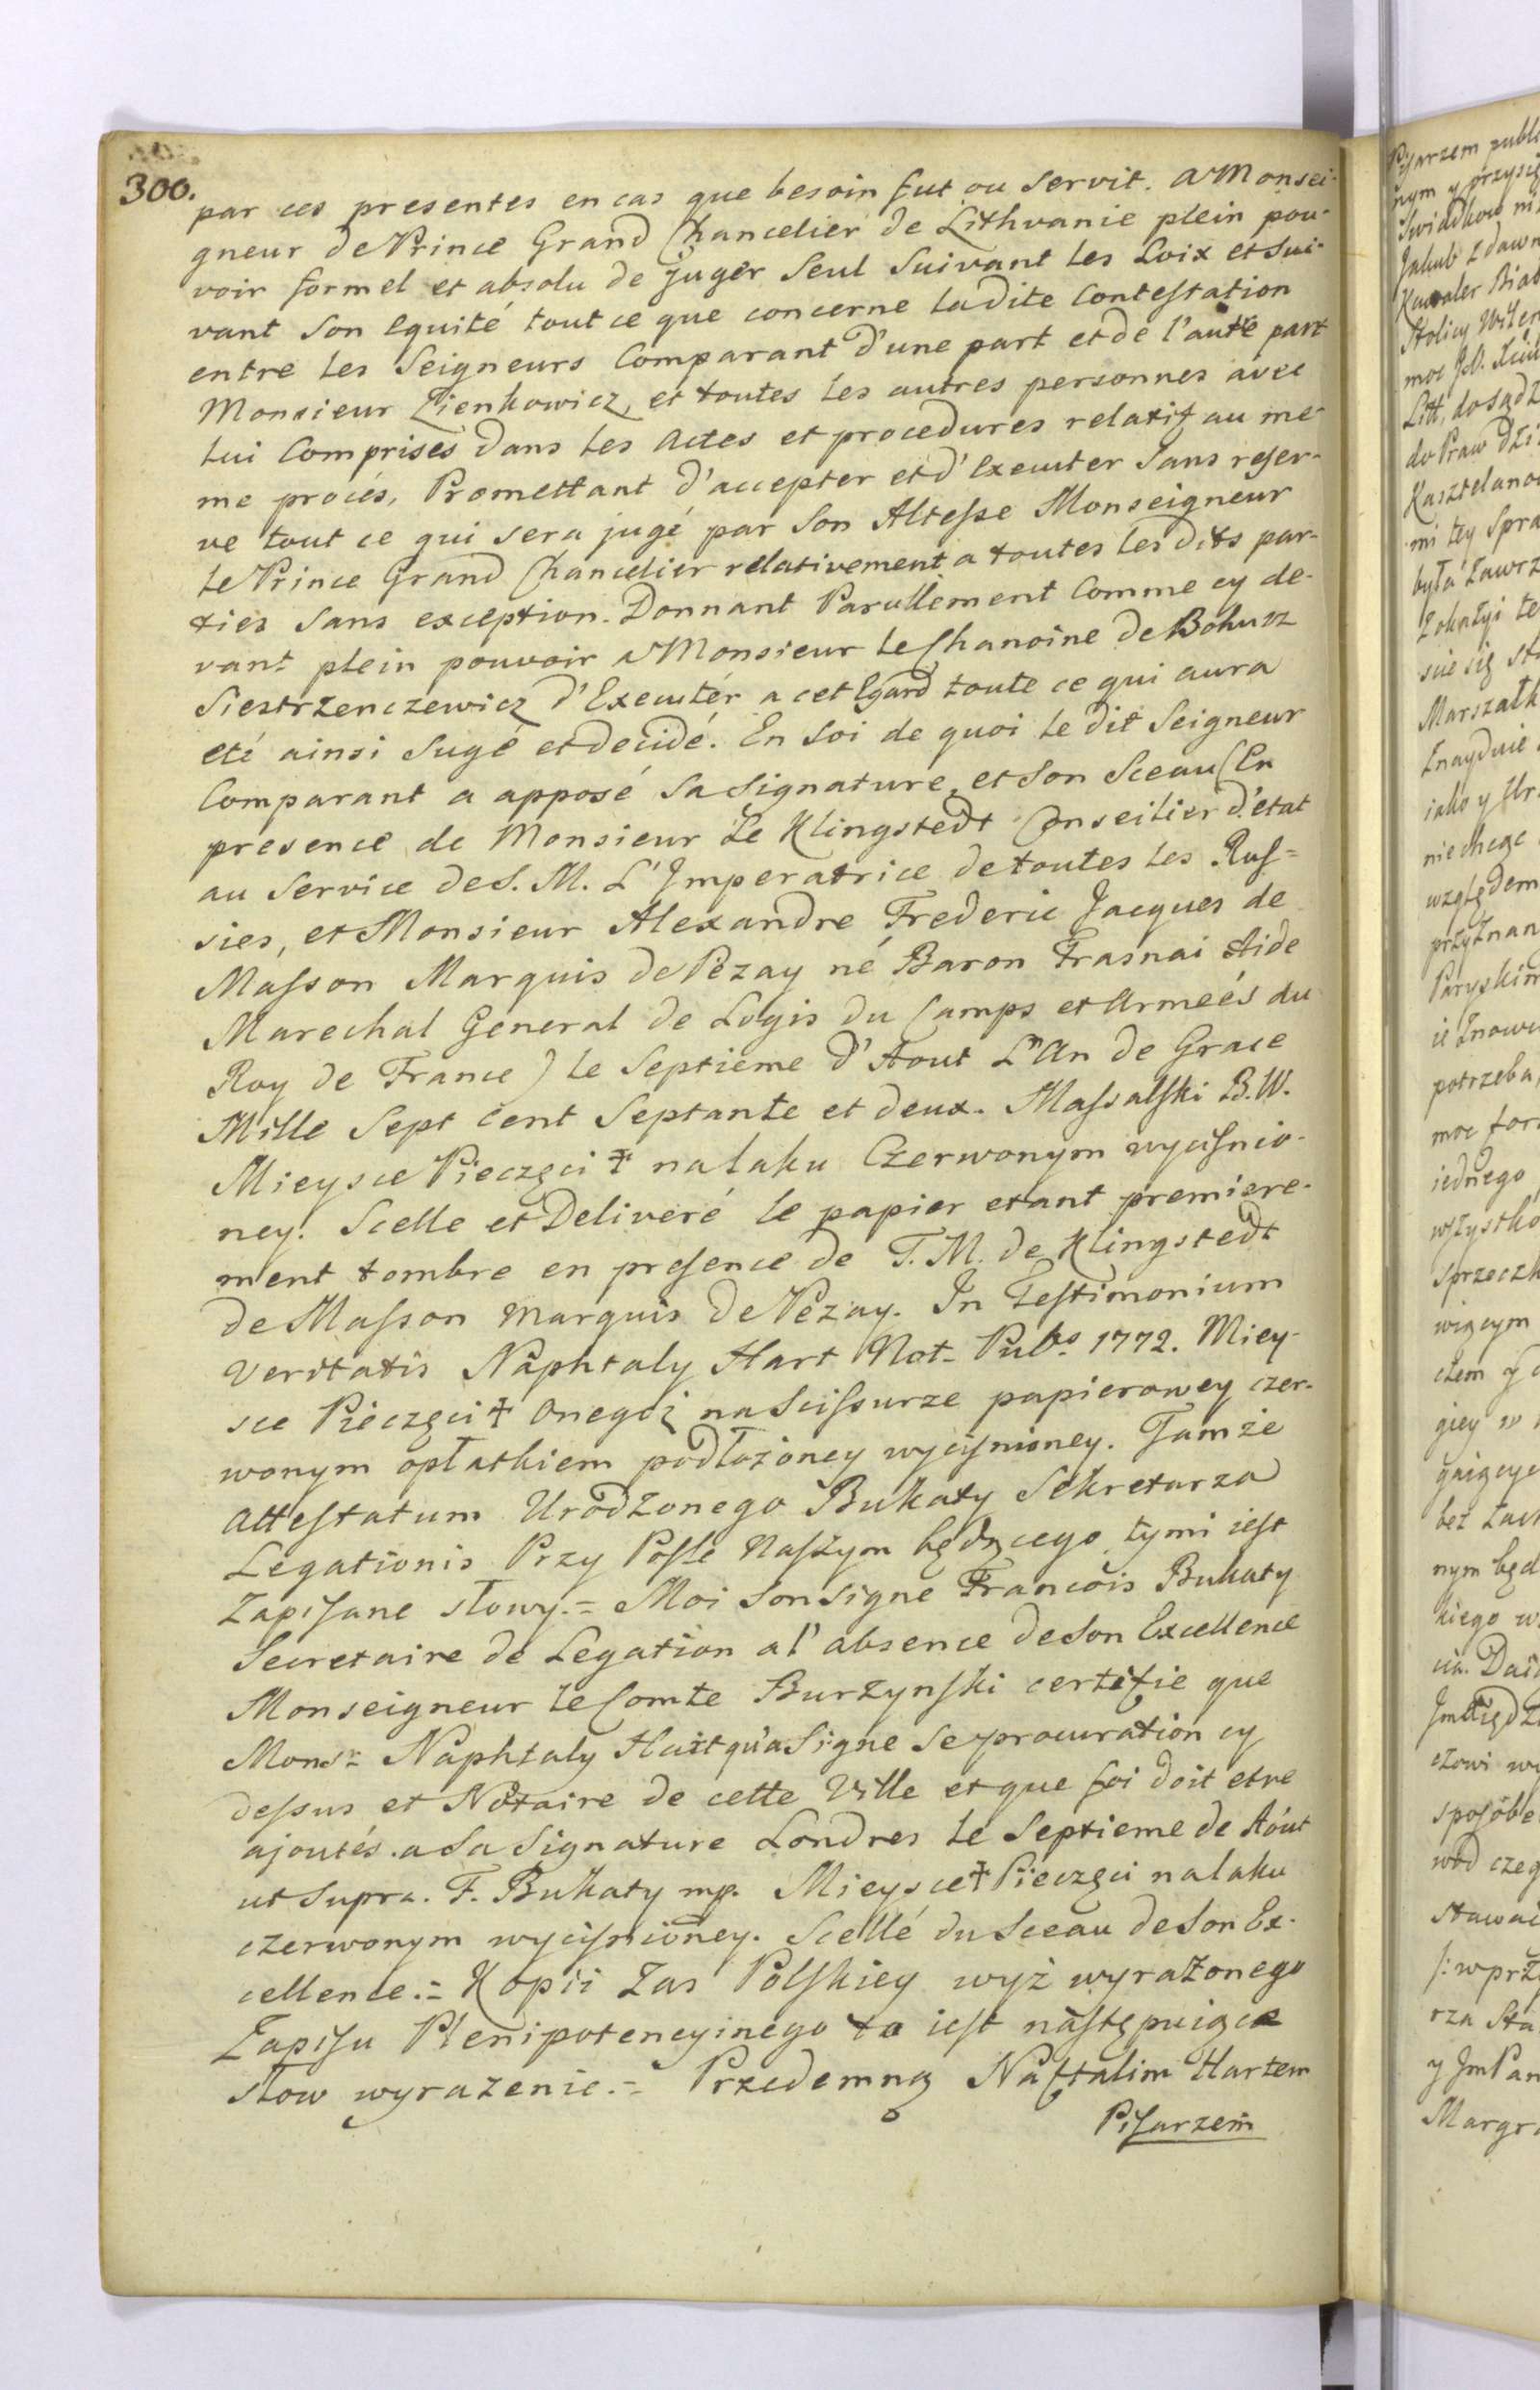 300.
par ces presentes en cas que besoin fut ou servit. A Monsei-
gneur de Prince Grand Chancelier de Lithvanie plein pou-
voir formel et absolu de juger Seul Suivant les Loix et Sui-
vant Son Equité tout ce que concerne ladite Contestation
entre les Seigneurs Comparant d'une part et de l'autre part
Monsieur Zienkowicz, et toutes les autres personnes avec
lui Comprises dans les Actes et procedures relatif au me-
me procés, Promettant d'accepter et d'Executer Sans reser-
ve tout ce qui sera jugé par Son Altesse Monseigneur
le Prince Grand Chancelier relativement a toutes les dits par-
ties Sans exception. Donnant Parullement Comme cy de-
vant plein pouvoir a Monsieur le Chanoine de Bohusz
Siestrzenczewicz d'Executér a cet Egard toute ce qui aura
eté ainsi Sugé et decidé. En Soi de quoi le dit Seigneur
Comparant a apposé Sa Signature, et Son Sceau (En
presence de Monsieur Le Klingstedt Conseilier d'etat
au Service de S. M. L'Imperatrice de toutes les Rus=
sies, et Monsieur Alexandre Frederic Jacques de
Masson Marquis de Pezay né Baron Frasnai Aide
Marechal General de Logis du Camps et Armeés du
Roy de France) le Septieme d'Aout L'An de Grace
Mille Sept Cent Septante et deux. Massalski B. W.
Mieysce Pieczęci ‡ na laku Czerwonym wycisnio-
ney. Scelle et Deliveré le papier etant premiere-
ment tombre en presence de T. M. de Klingstedt
de Masson Marquis de Pezay. In Testimonium
Veritatis Naphtaly Hart Not. Pubs. 1772. Miey-
sce Pieczęci ‡ Onegoż na Scissurze papierowey czer-
wonym opłatkiem podłożoney wycisnioney. Tamże
Attestatum Urodzonego Bukaty Sekretarza
Legationis Przy Pośle Naszym będącego tymi iest
Zapisane słowy.= Moi Sonsigne Francois Bukaty
Secretaire de Legation a l'absence de Son Excellence
Monseigneur le Comte Burzynski certifie que
Monsr. Naphtaly Hart qu'a Signe Se procuration cy
dessus et Notaire de cette Ville et que foi doit etre
ajoutés. a Sa Signature Londres le Septieme de Aóut
ut Supra. F. Bukaty mp. Mieysce ‡ Pieczęci na laku
czerwonym wycisnioney. Scellé du Sceau de Son Ex-
cellence.= Kopii Zas Polskiey wyż wyrażonego
Zapisu Plenipotencyinego to iest następuiące
słow wyrazenie.= Przedemną Naftalim Hartem
Pisarzem